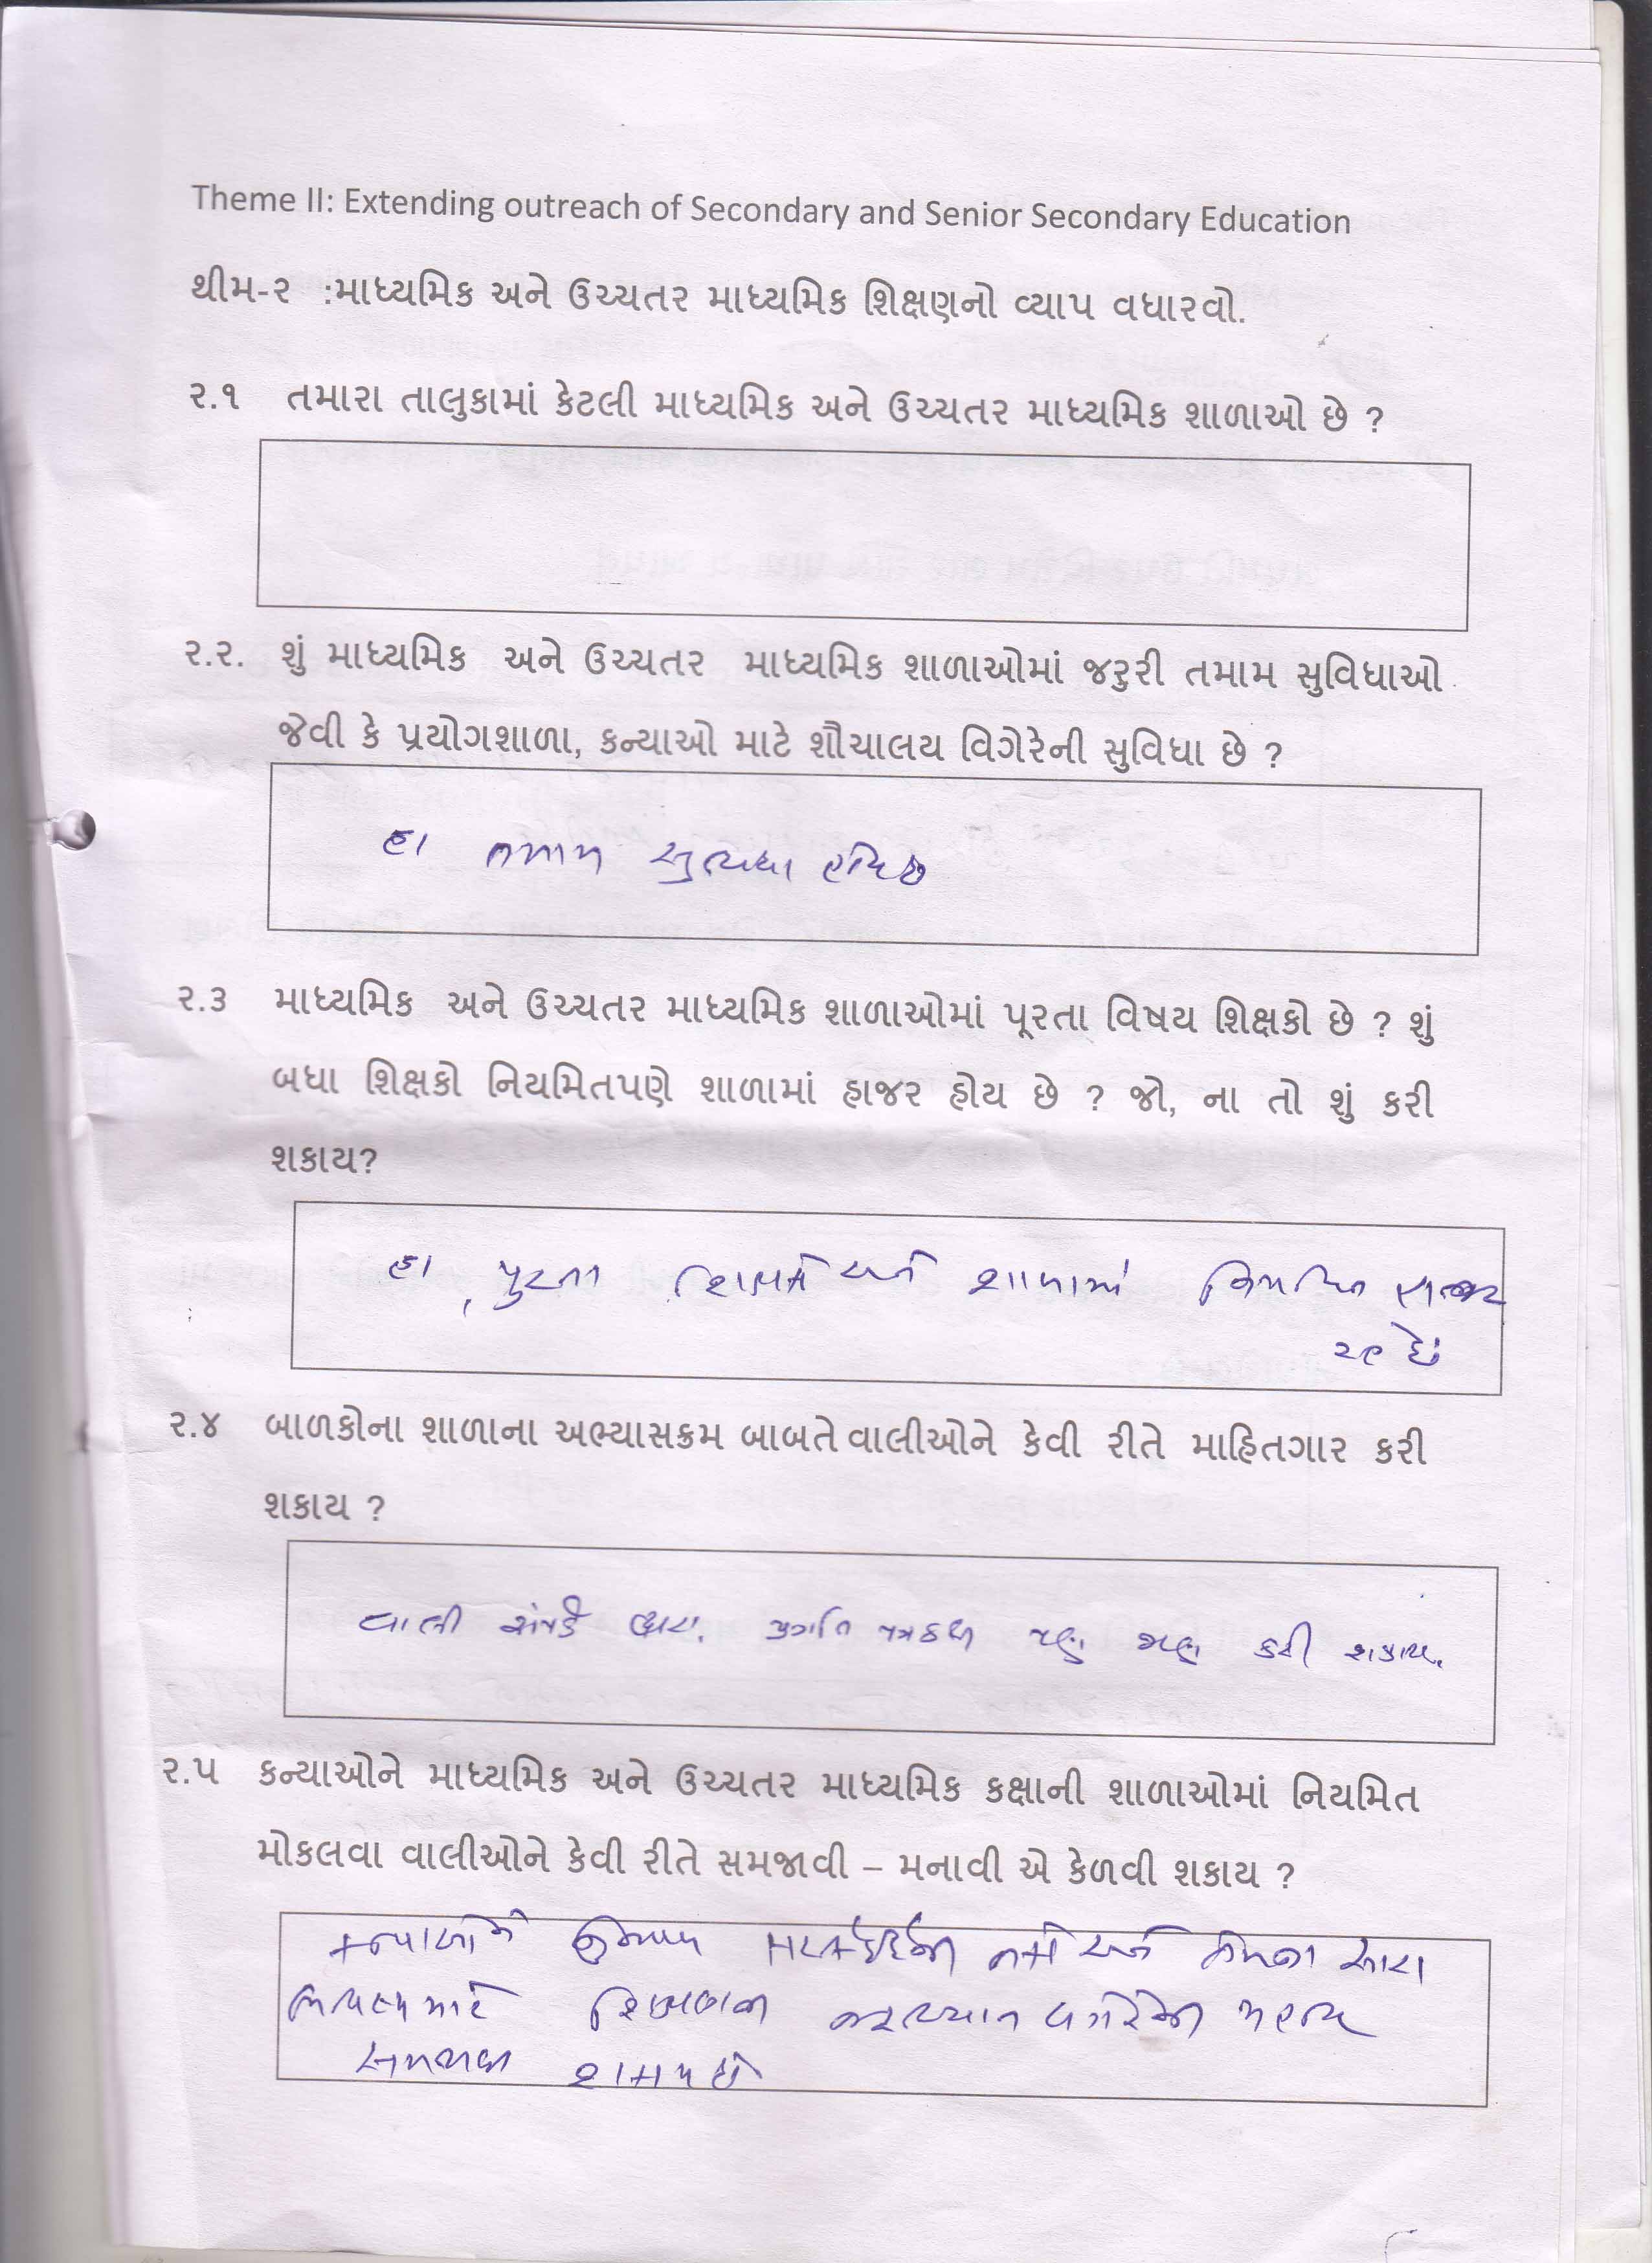 Theme II: Extending outreach of Secondary and Senior Secondary Education
થીમ-ર :માધ્યમિક અને ઉચ્ચતર માધ્યમિક શિક્ષણનો વ્યાપ વધારવો.
ર.૧ તમારા તાલુકામાં કેટલી માધ્યમિક અને ઉચ્ચતર માધ્યમિક શાળાઓ છે ?
ર.ર. શું માધ્યમિક અને ઉચ્ચતર માધ્યમિક શાળાઓમાં જરુરી તમામ સુવિધાઓ
જેવી કે પ્રયોગશાળા, કન્યાઓ માટે શૌચાલય વિગેરેની સુવિધા છે ?
હા તમામ
ર.૩ માધ્યમિક અને ઉચ્ચતર માધ્યમિક શાળાઓમાં પૂરતા વિષય શિક્ષકો છે ? શું
બધા શિક્ષકો નિયમિતપણે શાળામાં હાજર હોય છે ? જો, ના તો શું કરી
શકાય?
હા, પુરતા શાળામાં
ર.૪ બાળકોના શાળાના અભ્યાસક્રમ બાબતે વાલીઓને કેવી રીતે માહિતગાર કરી
શકાય ?
વાલી પ્રગતિ કરી શકાય.
ર.૫ કન્યાઓને માધ્યમિક અને ઉચ્ચતર માધ્યમિક કક્ષાની શાળાઓમાં નિયમિત
મોકલવા વાલીઓને કેવી રીતે સમજાવી – મનાવી એ કેળવી શકાય ?
અને સારા
માટે